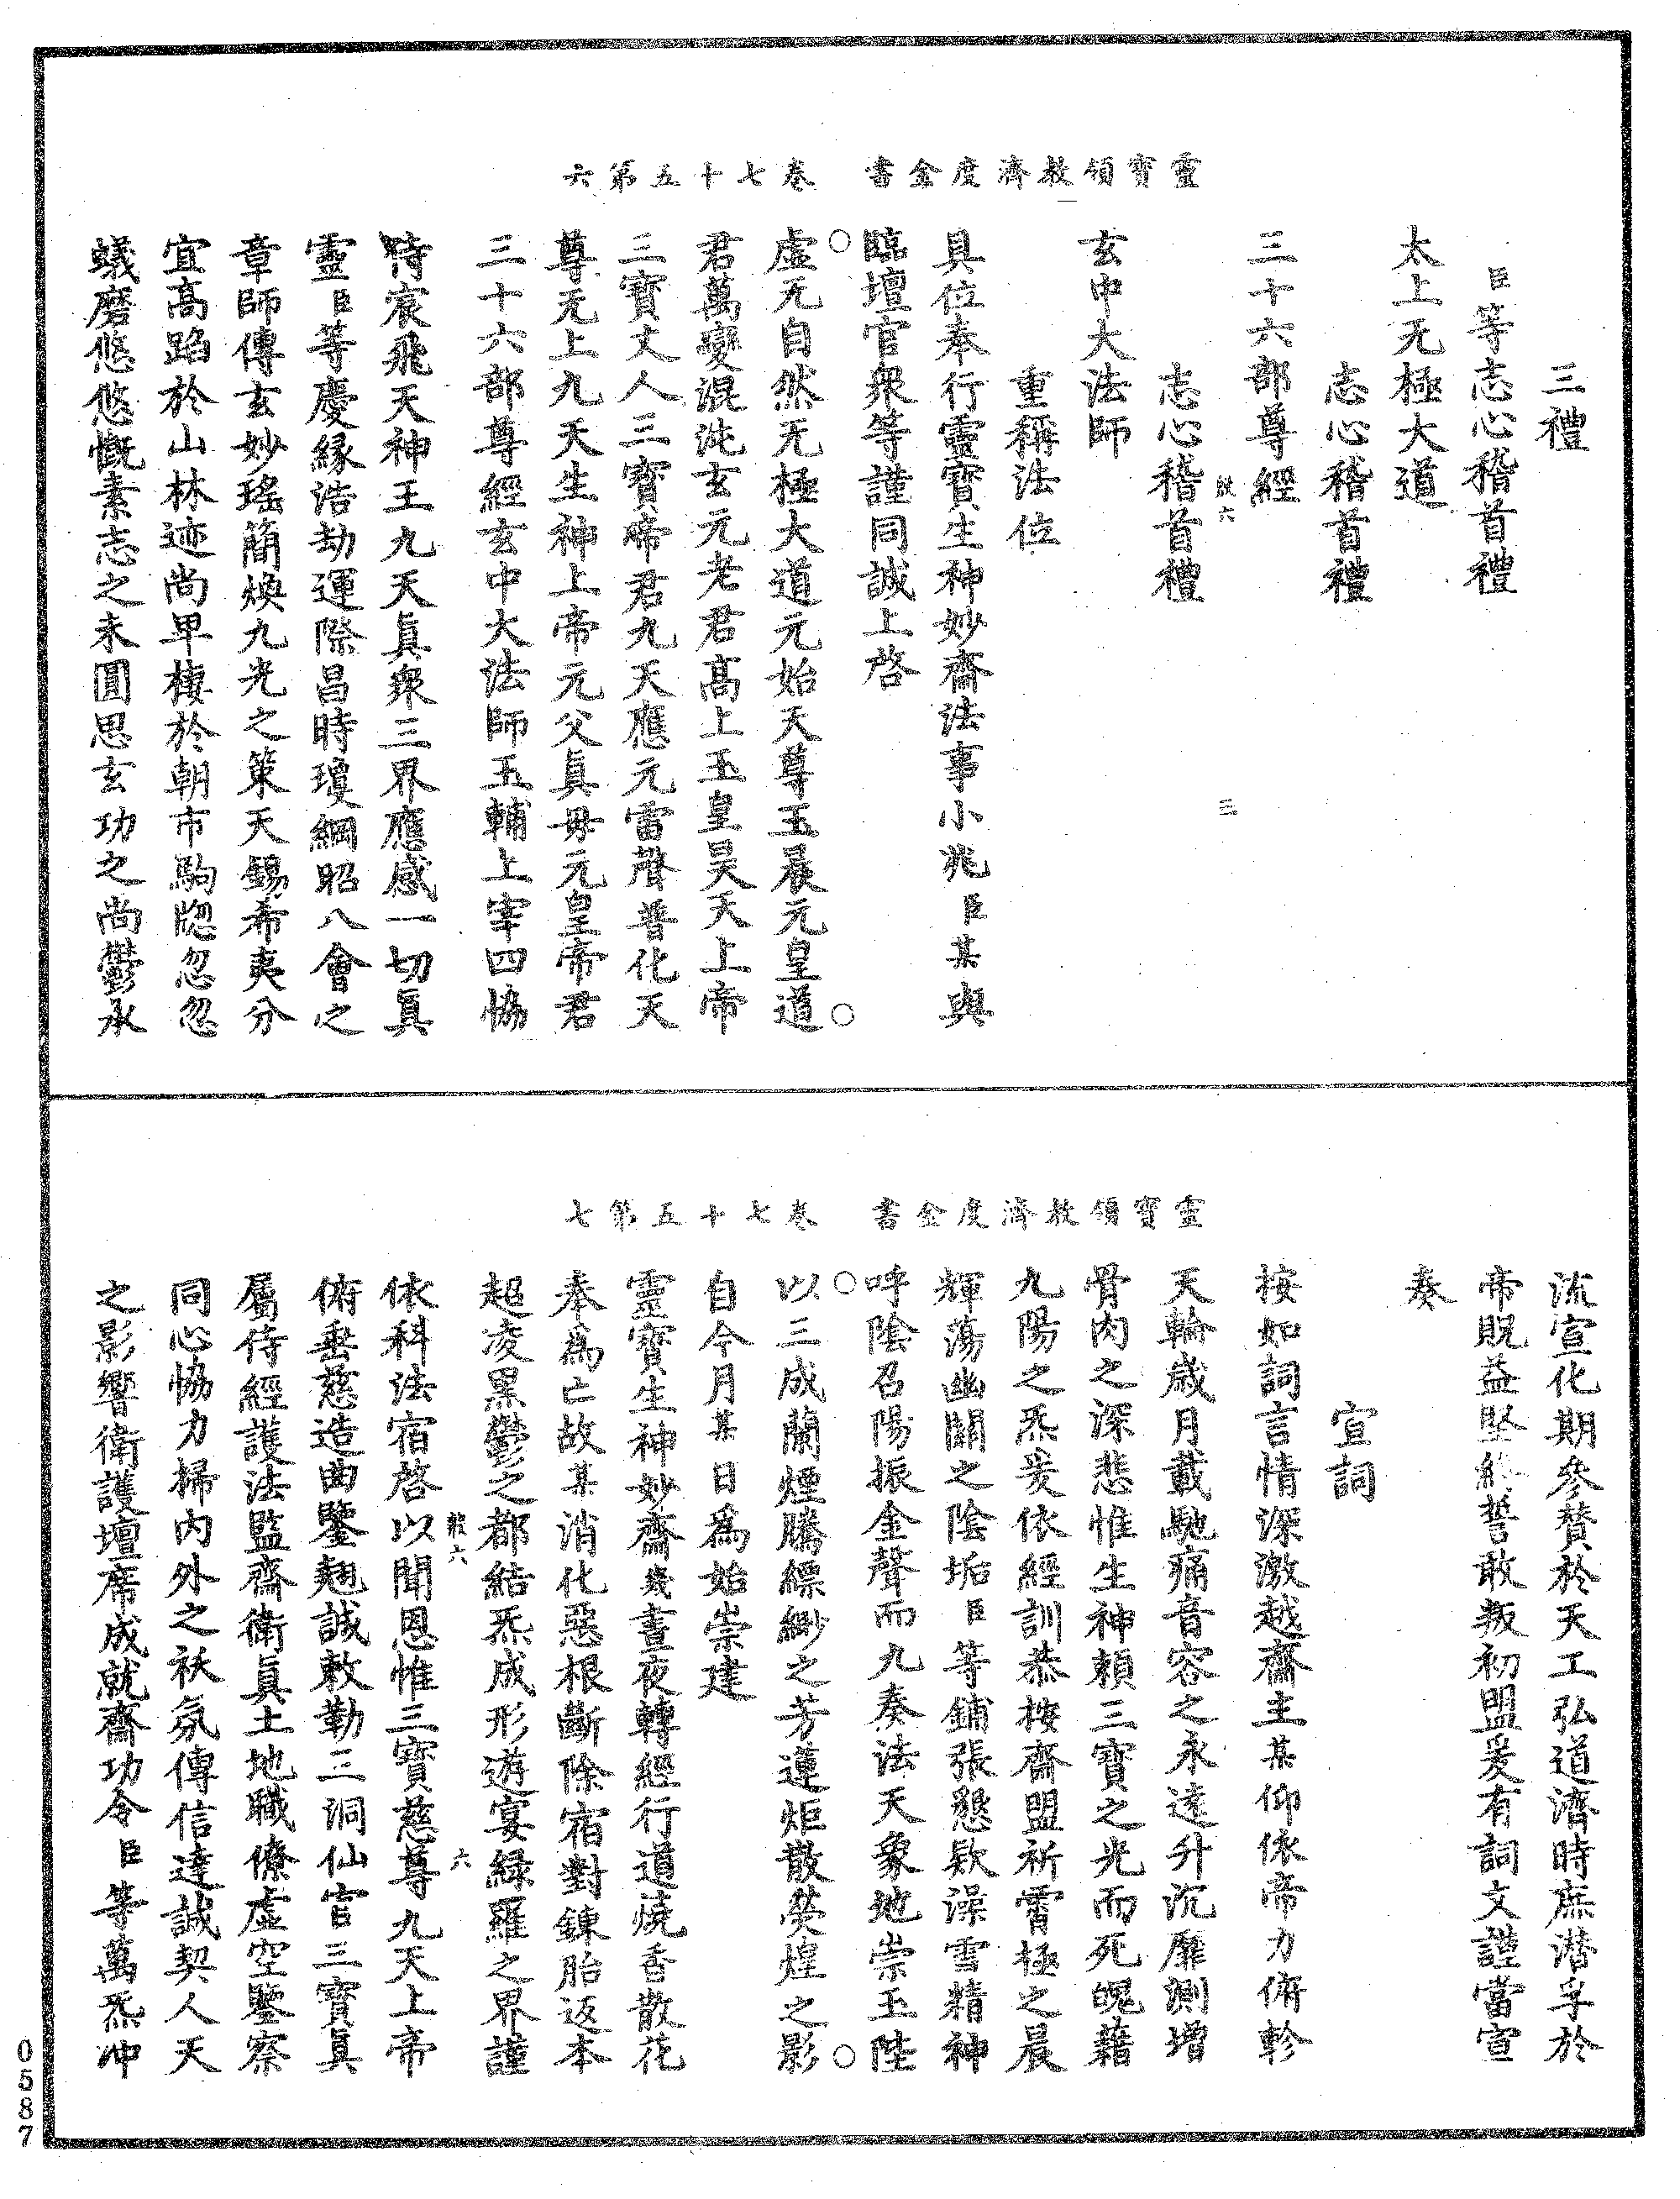 靈寶領教濟度金書　卷七十五第六
三禮
臣等志心稽首禮
太上无極大道
志心稽首禮
三十六部尊經
六
三
志心稽首禮
玄中大法師
重稱法位
具位奉行靈寶生神妙齋法事小兆臣某與
臨壇官衆等謹同誠上啓
虛无自然无極大道元始天尊玉晨元皇道
君萬變混沌玄元老君高上玉皇昊天上帝
三寶丈人三寶帝君九天應元雷聲普化天
尊无上九天生神上帝元父眞母元皇帝君
三十六部尊經玄中大法師玉輔上宰四協
侍宸飛天神王九天眞衆三界應感一切眞
靈臣等慶緣浩劫運際昌時瓊綱昭八會之
章師傳玄妙瑤簡煥九光之策天錫希夷分
宜高蹈於山林迹尚卑棲於朝市駒隙忽忽
蟻磨悠悠慨素志之未圓思玄功之尚鬱永
靈寶領教濟度金書　卷七十五第七
流宣化期參贊於天工弘道濟時庶潜孚於
帝貺益堅終誓敢叛初盟爰有詞文謹當宣
奏
宣詞
按如詞言情深激越齋主某仰依帝力俯軫
天輪歲月載馳痛音容之永違升沉靡測增
骨肉之深悲惟生神賴三寶之光而死魄藉
九陽之炁爰依經訓恭按齋盟祈霄極之晨
輝蕩幽關之陰垢臣等鋪張懇欵澡雪精神
呼陰召陽振金聲而九奏法天象地崇玉陛
以三成蘭煙騰縹緲之芳蓮炬散熒煌之影
自今月某日爲始崇建
靈寶生神妙齋幾晝夜轉經行道燒香散花
奉爲亡故某消化惡根斷除宿對鍊胎返本
超凌黑鬱之都結炁成形遊宴綠羅之界謹
六
六
依科法宿啓以聞恩惟三寶慈尊九天上帝
俯垂慈造曲鑒翹誠敕勒三洞仙官三寶眞
屬侍經護法監齋衛眞土地職僚虛空鑒察
同心恊力掃內外之祅氛傳信達誠契人天
之影響衛護壇席成就齋功令臣等萬炁冲
0587